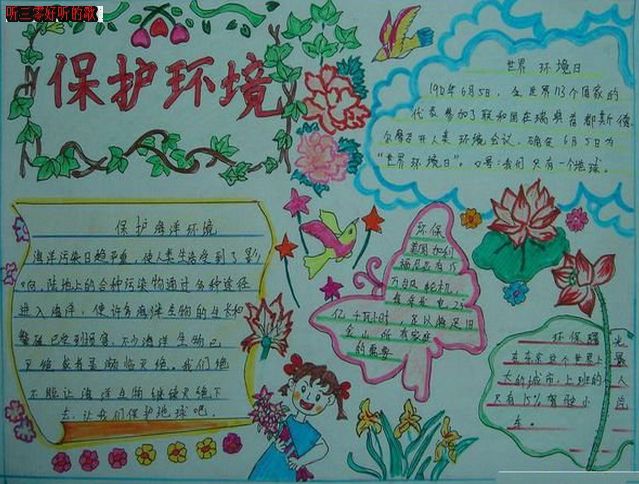 听三零好听的歌
保护环境
世界 环境日
6月5日,全世界113个国家的
代表参加了联和国在瑞典首都斯德
召开人类环境会议。确定6月5日为
"世界环境日"。口号:我们只有一个地球。
保护海洋环境
海洋污染日趋严重,使人类生活受到了影
响,陆地上的各种污染物通过各种途径
进入海洋,使许多海洋生物的生长和
繁殖已受到损害,不少海洋生物已
灭绝或者濒临灭绝。我们绝
不能让海洋生物继续灭绝下
去,让我们保护地球吧。
环保
美国加利
福尼亚有15
万
年发电24
亿千瓦小时,足以满足旧
金山所有家庭
的需要
环保
东京这个世界上最
大的城市,上班的人
只有15%驾驶小
车。